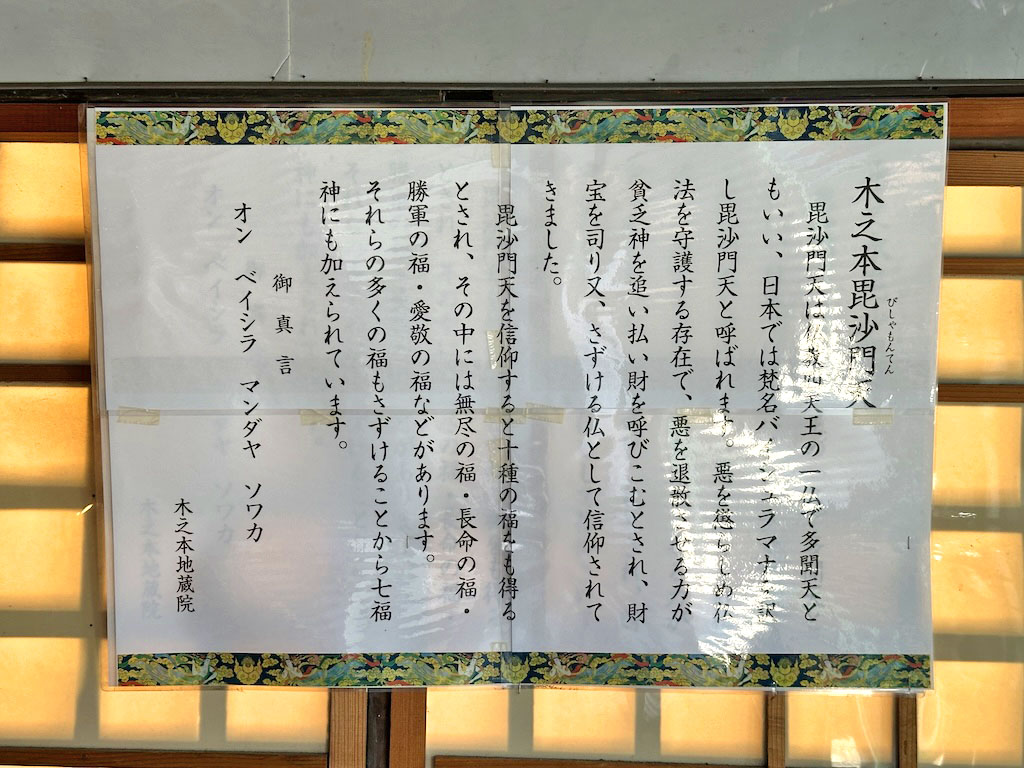 木之本毘沙門天
びしゃもんてん
毘沙門天は仏教四天王の一仏で多聞天と
もいい、日本では梵名バイシュラマナを訳
し毘沙門天と呼ばれます。悪を懲らしめ仏
法を守護する存在で、悪を退散させる力が
貧乏神を追い払い財を呼びこむとされ、財
宝を司り又、さずける仏として信仰されて
きました。
毘沙門天を信仰すると十種の福をも得る
とされ、その中には無尽の福・長命の福・
勝軍の福・愛敬の福などがあります。
それらの多くの福もさずけることから七福
神にも加えられています。
御真言
オン ベイシラ マンダヤ ソワカ
木之本地蔵院